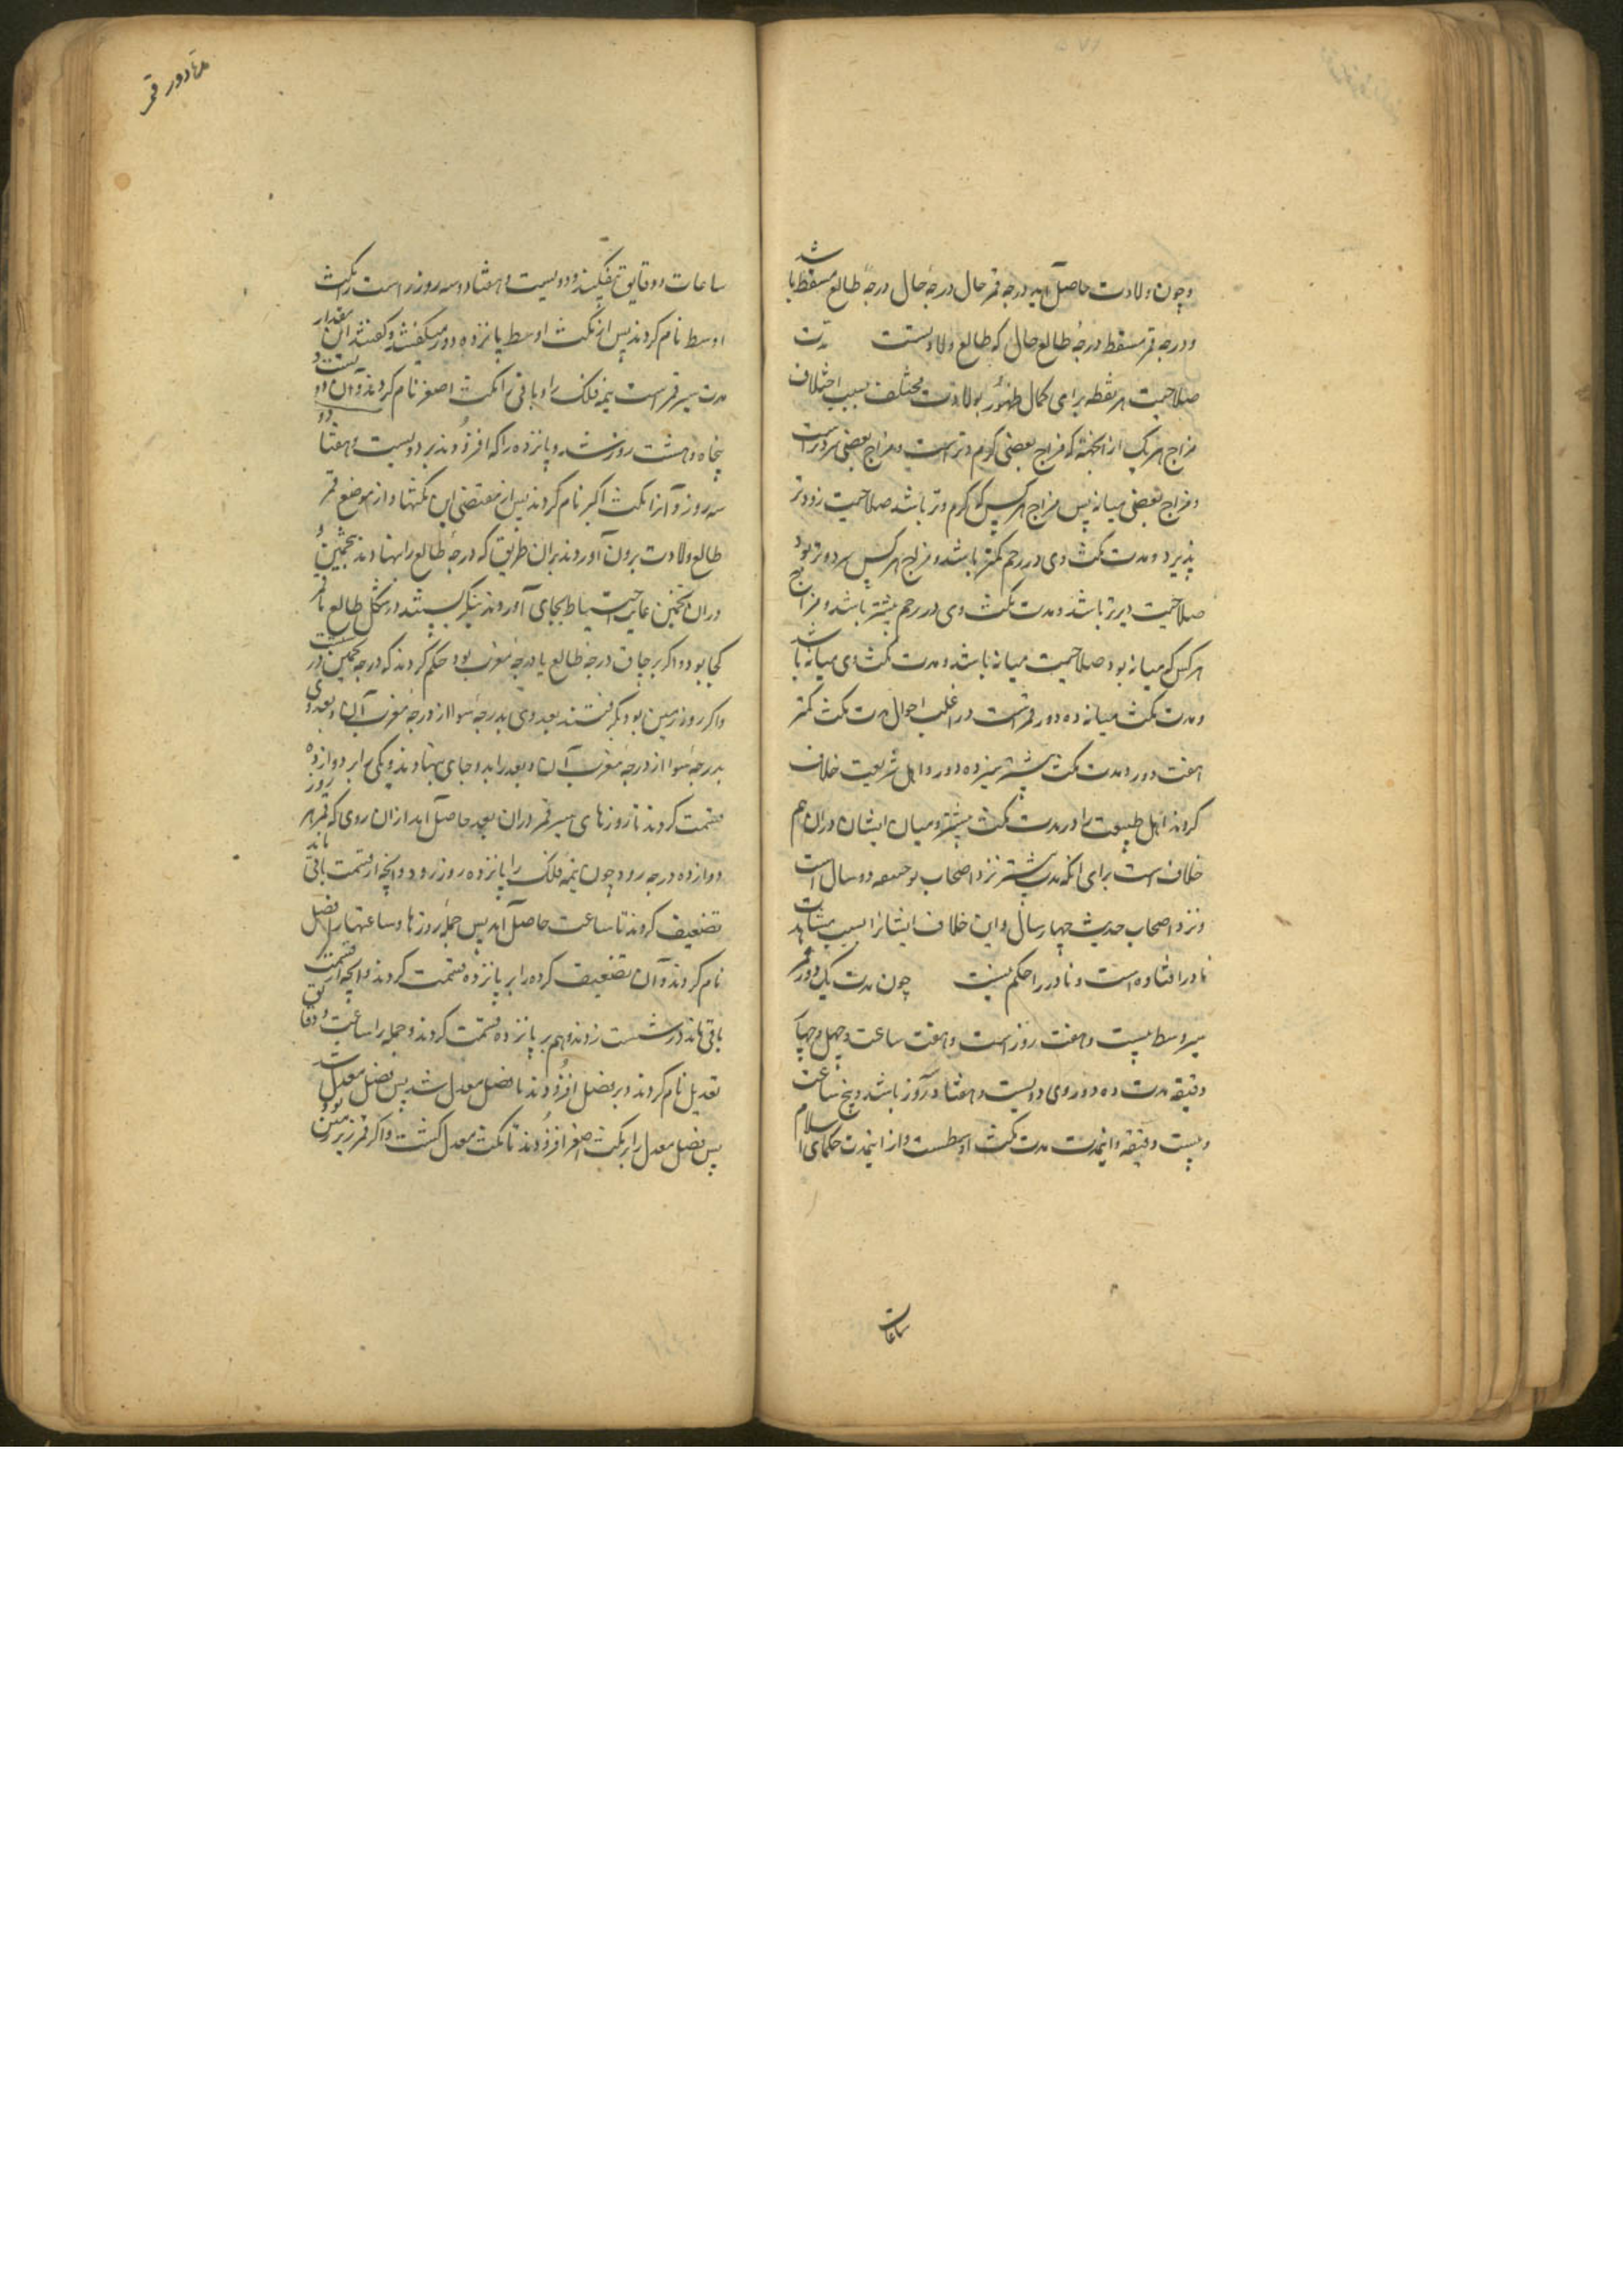 و چون ولادت حاصل آید درجه قمر حال درجهٔ حال درجهٔ طالع مسقط باشد
و درجه قمر مسقط درجهٔ طالع حال که طالع ولادتست
صلاحیت هر نقطه برای کمال ظهور بولادت مختلف بسبب اختلاف
مزاج هر یک از انجمه که مزاج بعضی گرم و تر است و مزاج بعضی سرد تر است
و مزاج بعضی میانه پس مزاج هر کس که گرم و تر باشد صلاحیت زودتر
پذیرد و مدت مکث وی در رحم کمتر باشد و مزاج هر کس سرد و تر بود
صلاحیت دیرتر باشد و مدت مکث وی در رحم بیشتر باشد و مزاج
هر کس که میانه بود صلاحیت میانه باشد و مدت مکث وی میانه باشد
و مدت مکث میانه ده دور قمر است در اغلب احوال مدت مکث کمتر
هفت دور و مدت مکث بیشتر سیزده دور و اهل شریعت خلاف
کردند اهل طبیعت را در مدت مکث بیشتر و میان ایشان دران هم
خلاف است برای انکه مدت بیشتر نزد اصحاب بو حنیفه دو سال است
و نزد اصحاب حدیث چهار سال و این خلاف ایشانرا بسبب مشاهدات
نادر افتاده است و نادر را حکم نیست چون مدت یک دور قمر
بسیر وسط بیست و هفت روز است و هفت ساعت و چهل و چهار
دقیقه مدت ده دور وی دویست و هفتاد و روز باشد و پنج ساعت
و بیست دقیقه و اینمدت مدت مکث اوسطست و از اینمدت حکمای اسلام
ساعات
مهادور قمر
ساعات و دقایق بیفکند و دویست و هفتاد و سه روز راست را مکث
اوسط نام کردند پس از مکث اوسط پانزده دور میکفتند و کفتند این مقدار
مدت سیر قمر است نیمه فلک را و باقی را مکث اصغر نام کردند و آن دویست و
پنجاه و هشت روز شد و پانزده را که افزودند بر دویست و هفتاد و
سه روز و آنرا مکث اکبر نام کردند پس از مقتضی این مکثها و از موضع قمر
طالع ولادت برون آوردند بران طریق که درجهٔ طالع را نهادند بتخمین و
دران تخمین غایت احتیاط بجای آوردند بنگریستند در شکل طالع تا قمر
کجا بود و اگر بر چاق درجهٔ طالع یا درجهٔ مغرب بود حکم کردند که درجه تخمین درست
و اگر روز زمین بود بکرفتند بعد وی بدرجه سوا از درجهٔ مغرب آن و بعد وی
بدرجه سوا از درجهٔ مغرب آن و بعد را بدو جای بنهادند و یکی را بر دوازده
قسمت کردند تا روزهای سیر قمر دران بعد حاصل آید از ان روی که قمر هر روز
دوازده درجه رود چون نیمه فلک را پانزده روز رود و انچه از قسمت باقی ماند
تضعیف کردند تا ساعت حاصل آید پس جملهٔ روزها و ساعتها را فضل
نام کردند و آن تضعیف کرده را بر پانزده قسمت کردند و انچه از قسمت
باقی ماند در شست زدند و هم بر پانزده قسمت کردند و جمله را ساعت و دقایق
تعدیل نام کردند و بر فضل افزودند تا فضل معدل شد پس فضل معدل شد
پس فضل معدل را بر مکث اصغر افزودند تا مکث معدل کشت و اگر قمر زیر زمین بود